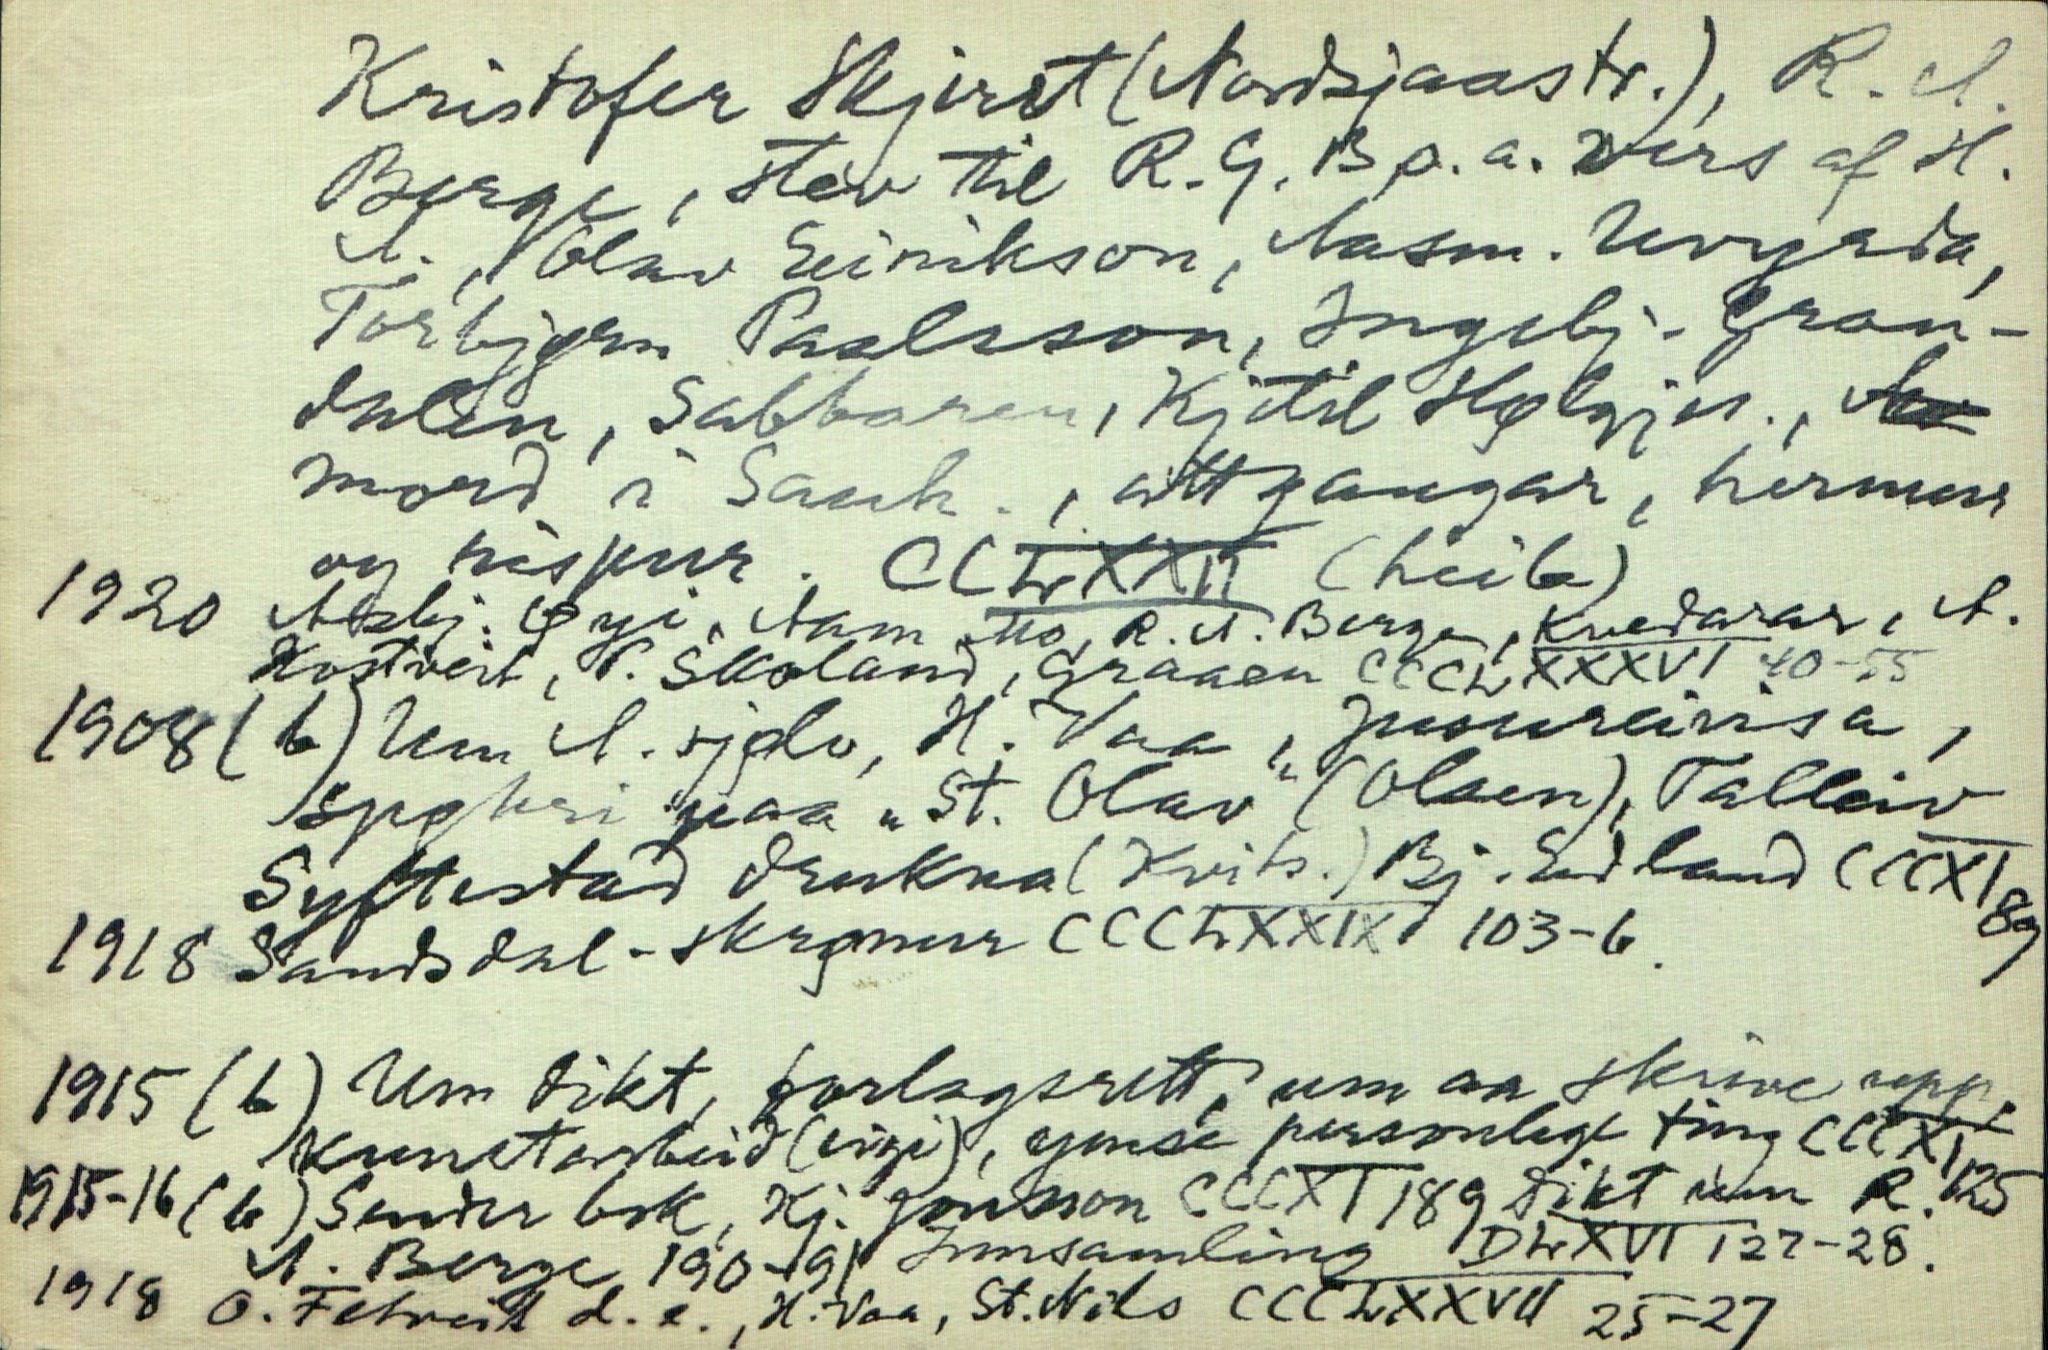 Kristofer Skjeret (Nordsjaastr.), R. A.
Berge, stev til R. G. B o. a. vers af H.
A., Olav Eirikson, Aasm. Uvyrda,
Torbjørn Paalsson, Ingebj. Gron-
dalen, Sabbaren, Kjetil Hølgjes.,
mord i Sauh., attgangar, hermur
og rispur. CCLXXII (heile)
1920 Asbj. Øyi, Aam otto, R. A. Berge, Kvedarar, A.
Kostveit, P. Skoland, Graaen CCCLXXXVI 40-55
1908 (b) Um A. sjølv, H. Vaa, Juoureivisa,
spøkri paa "St. Olav" (Olsen), Talleiv
Syftestad drukna (Kvits.) Bj. Eidland CCCXI 89
1918 Sandsdal-skrømur CCCLXXIX 103-6.
1915 (b) Um dikt, forlagsrett, um aa skrive upp,
kunstarbeid (eige), ymse personlege ting CCCXI 125
1915-16 (b) Sender bok, Kj. Jonsson CCCXI 189 Dikt um R.
A. Berge 190-91 Innsamling DLXVI 127-28.
1918 O. Fetveit d. e., H. Vaa, St. Nils CCCLXXVII 25-27